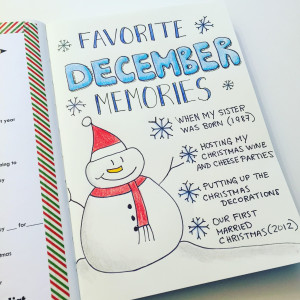 FAVORITE
DECEMBER
MEMORIES
WHEN MY SISTER
WAS BORN (1987)
HOSTING MY
CHRISTMAS WINE
AND CHEESE PARTIES
PUTTING UP THE
CHRISTMAS
DECORATIONS
OUR FIRST
MARRIED
CHRISTMAS (2012)
st year
ng to
by
for
tmas